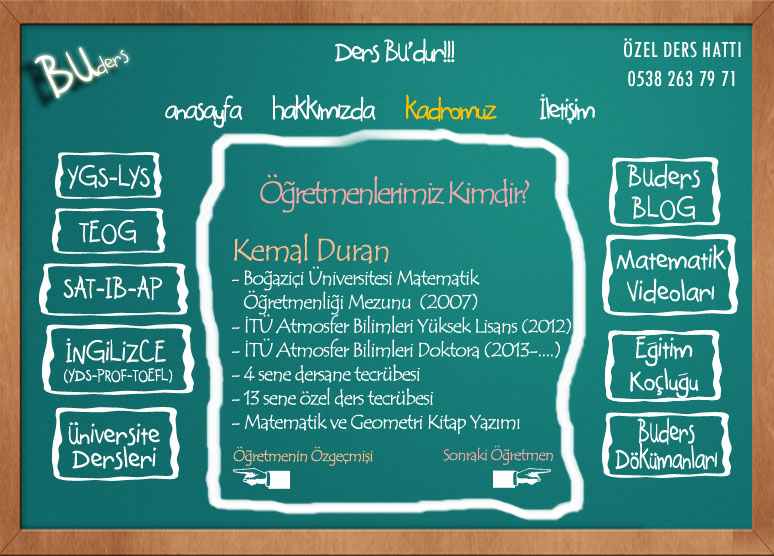 BUders
Ders BU'dur!!!
ÖZEL DERS HATTI
0538 263 79 71
anasayfa hakkımızda Kadromuz İletişim
YGS-LYS
TEOG
SAT-IB-AP
İNGİLİZCE
(YDS-PROF-TOEFL)
Üniversite
Dersleri
Öğretmenlerimiz Kimdir?
Kemal Duran
- Boğaziçi Üniversitesi Matematik
Öğretmenliği Mezunu (2007)
- İTÜ Atmosfer Bilimleri Yüksek Lisans (2012)
- İTÜ Atmosfer Bilimleri Doktora (2013-....)
- 4 sene dersane tecrübesi
- 13 sene özel ders tecrübesi
- Matematik ve Geometri Kitap Yazımı
Öğretmenin Özgeçmişi
Sonraki Öğretmen
Buders
BLOG
Matematik
Videoları
Eğitim
Koçluğu
Buders
DöKümanları